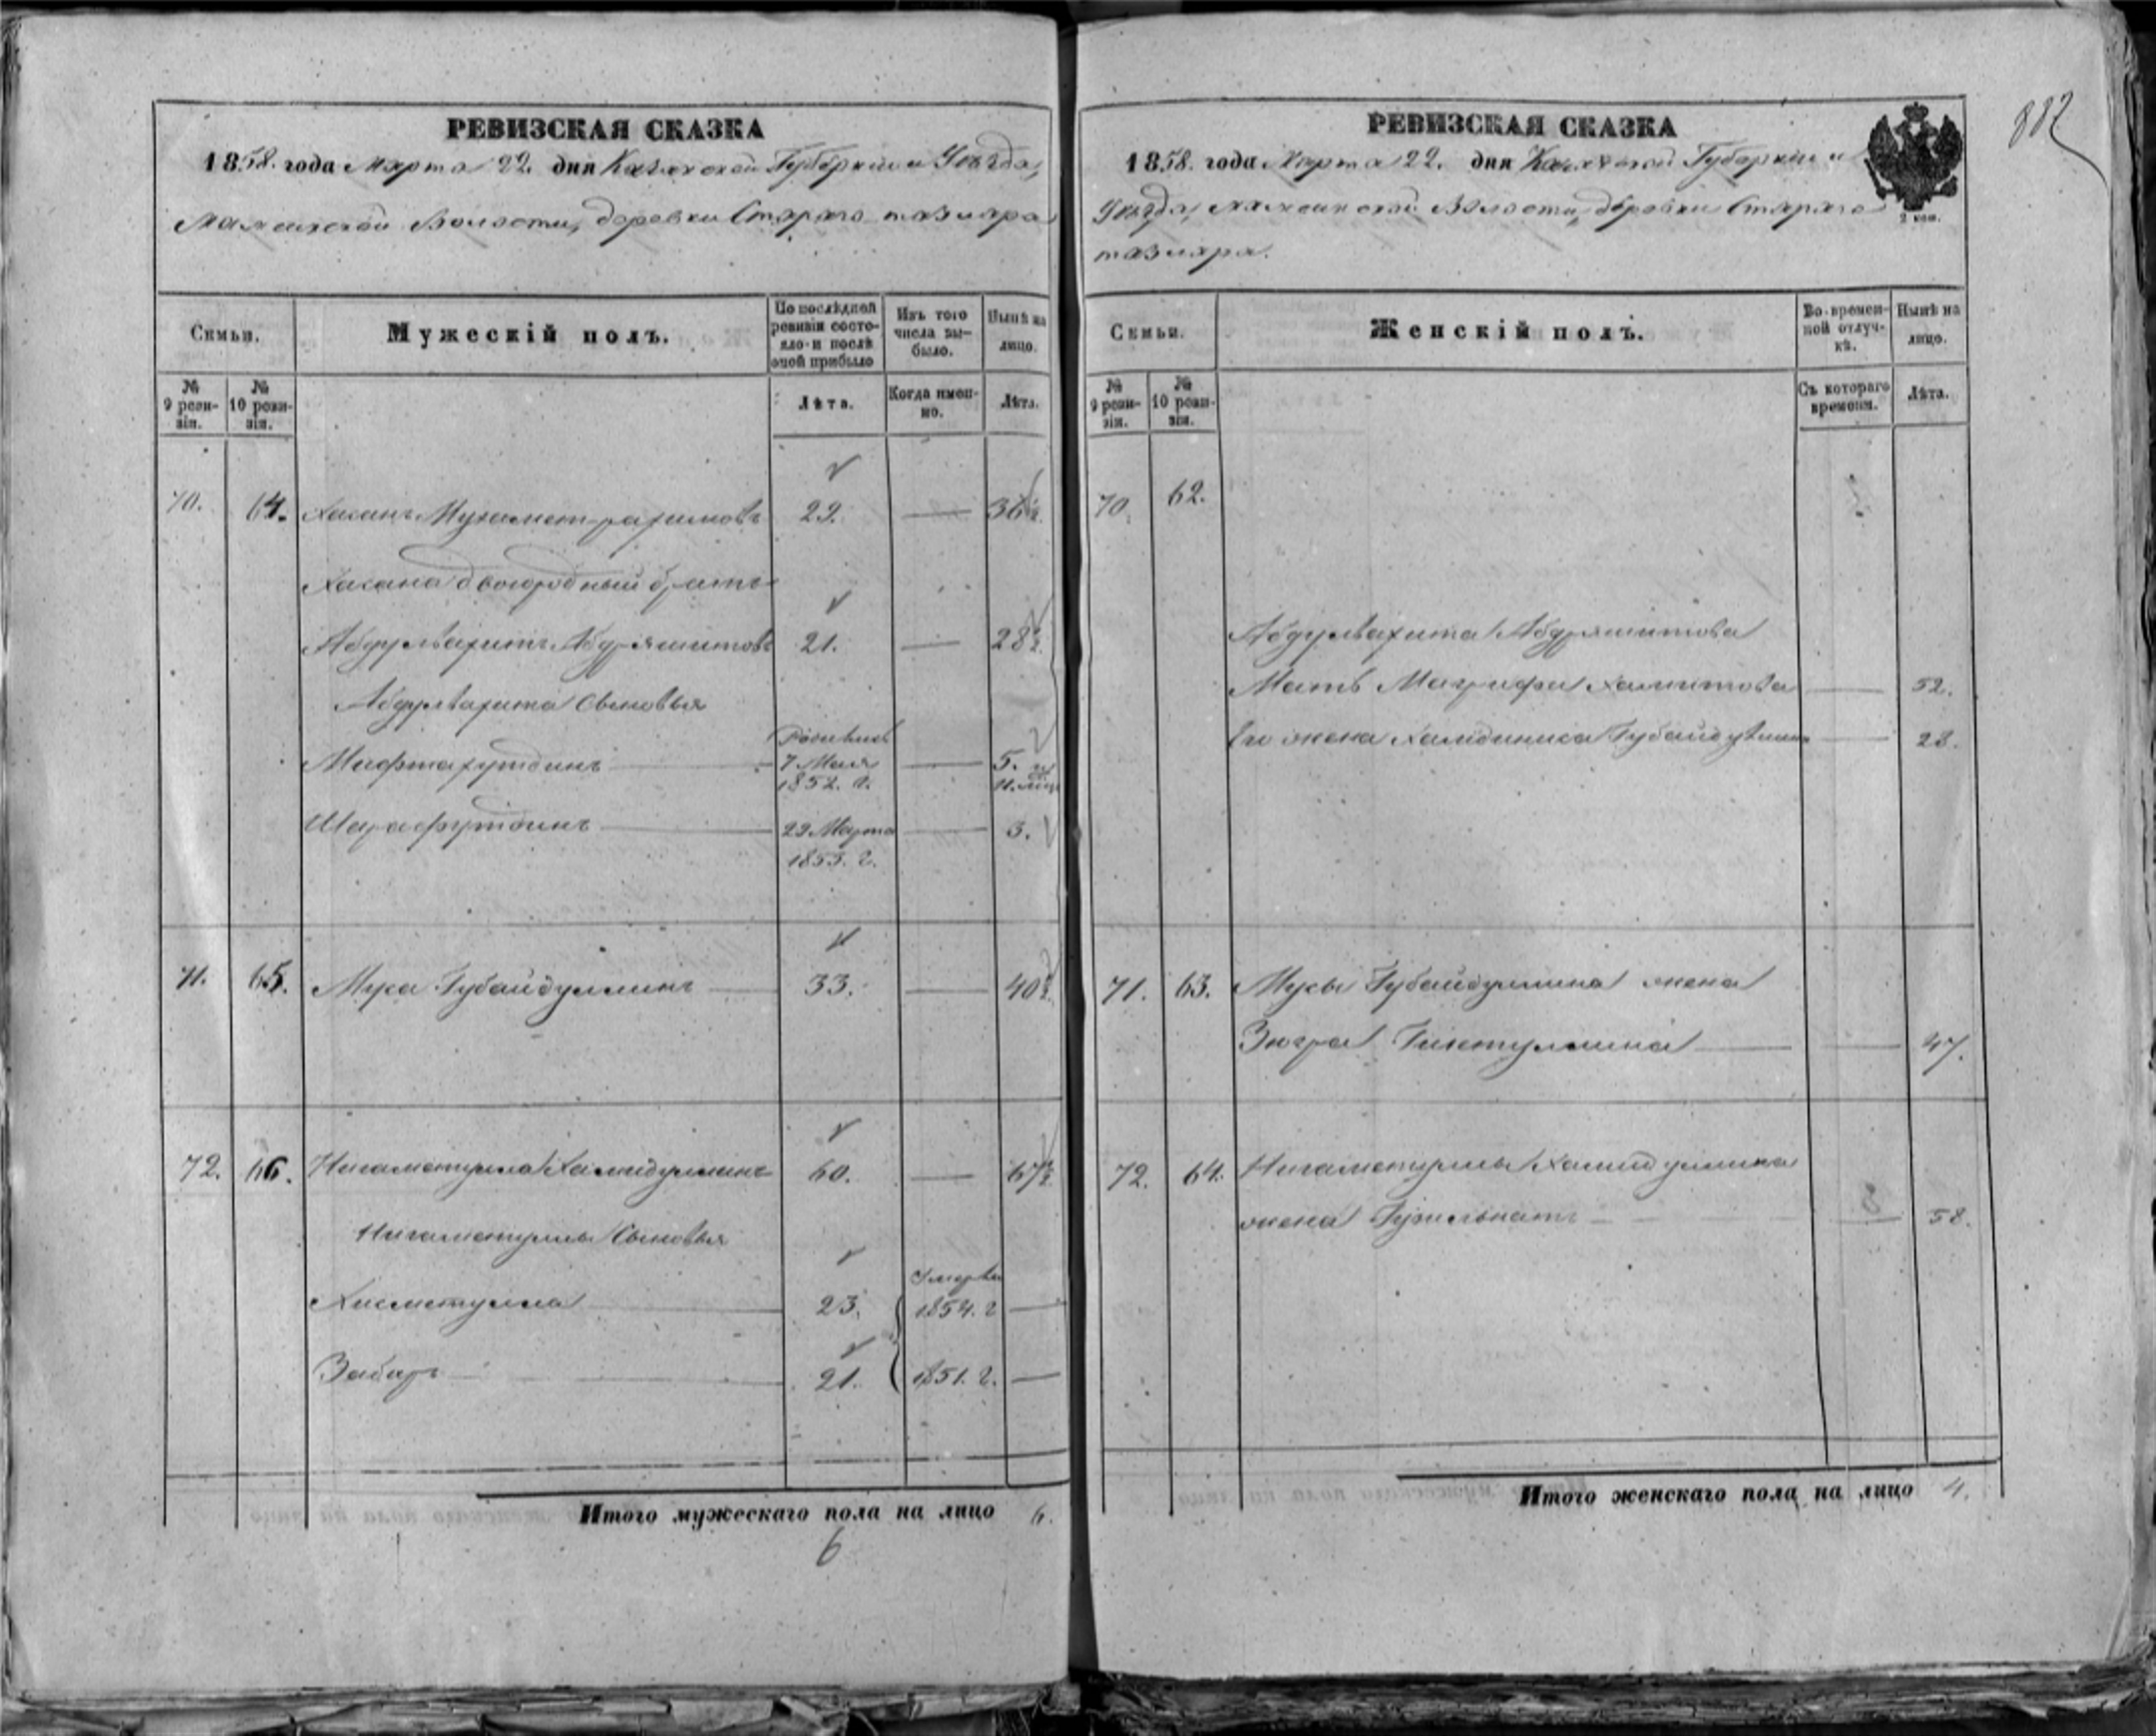 РЕВИЗСКАЯ СКАЗКА
1858. года Марта 22. дня Казанской Губерніи и Уѣзда,
Мамсинской Волости, деревни Стараго тазларa
Семьи.
Мужескій полъ.
По послѣдней ревизіи состояло и послѣ оной прибыло
Изъ того числа выбыло.
Нынѣ на лицо.
№ 9 ревизіи.
№ 10 ревизіи.
Лѣта.
Когда именно.
Лѣта.
70. 64. Хасанъ Мухаметрахимовъ 29. — 36½
Хасана двоюродный братъ
Абдулвахитъ Абдряшитовъ 21. — 28½
Абдулвахита Сыновья
Мифтахутдинъ — Родился 7 Мая 1852. г. — 5. и 11. мѣс
Шарафутдинъ — 22 Марта 1855. г. — 3.
71. 65. Муса Губайдуллинъ — 33. — 40½
72. 66. Нигаметулла Хамидуллинъ 60. — 67½
Нигаметуллы Сыновья
Хисметулла — 23. 1854. г —
Забаръ — 21. 1851. г. —
Итого мужескаго пола на лицо 6.
6
882
РЕВИЗСКАЯ СКАЗКА
1858. года Марта 22. дня Казанской Губерніи и
Уѣзда, Мамсинской Волости, деревни Стараго
тазлара.
2 коп.
Семьи.
Женскій полъ.
Во временной отлучкѣ.
Нынѣ на лицо.
№ 9 ревизіи.
№ 10 ревизіи.
Съ котораго времени.
Лѣта.
70. 62.
Абдулвахита Абдряшитова
Мать Магрифа Хамитова — 52.
Его жена Халидиниса — 28.
71. 63. Мусы Губайдуллина жена
Зюгра — — 47.
72. 64. Нигаметуллы Хамидуллина
жена — — 58.
Итого женскаго пола на лицо 4.